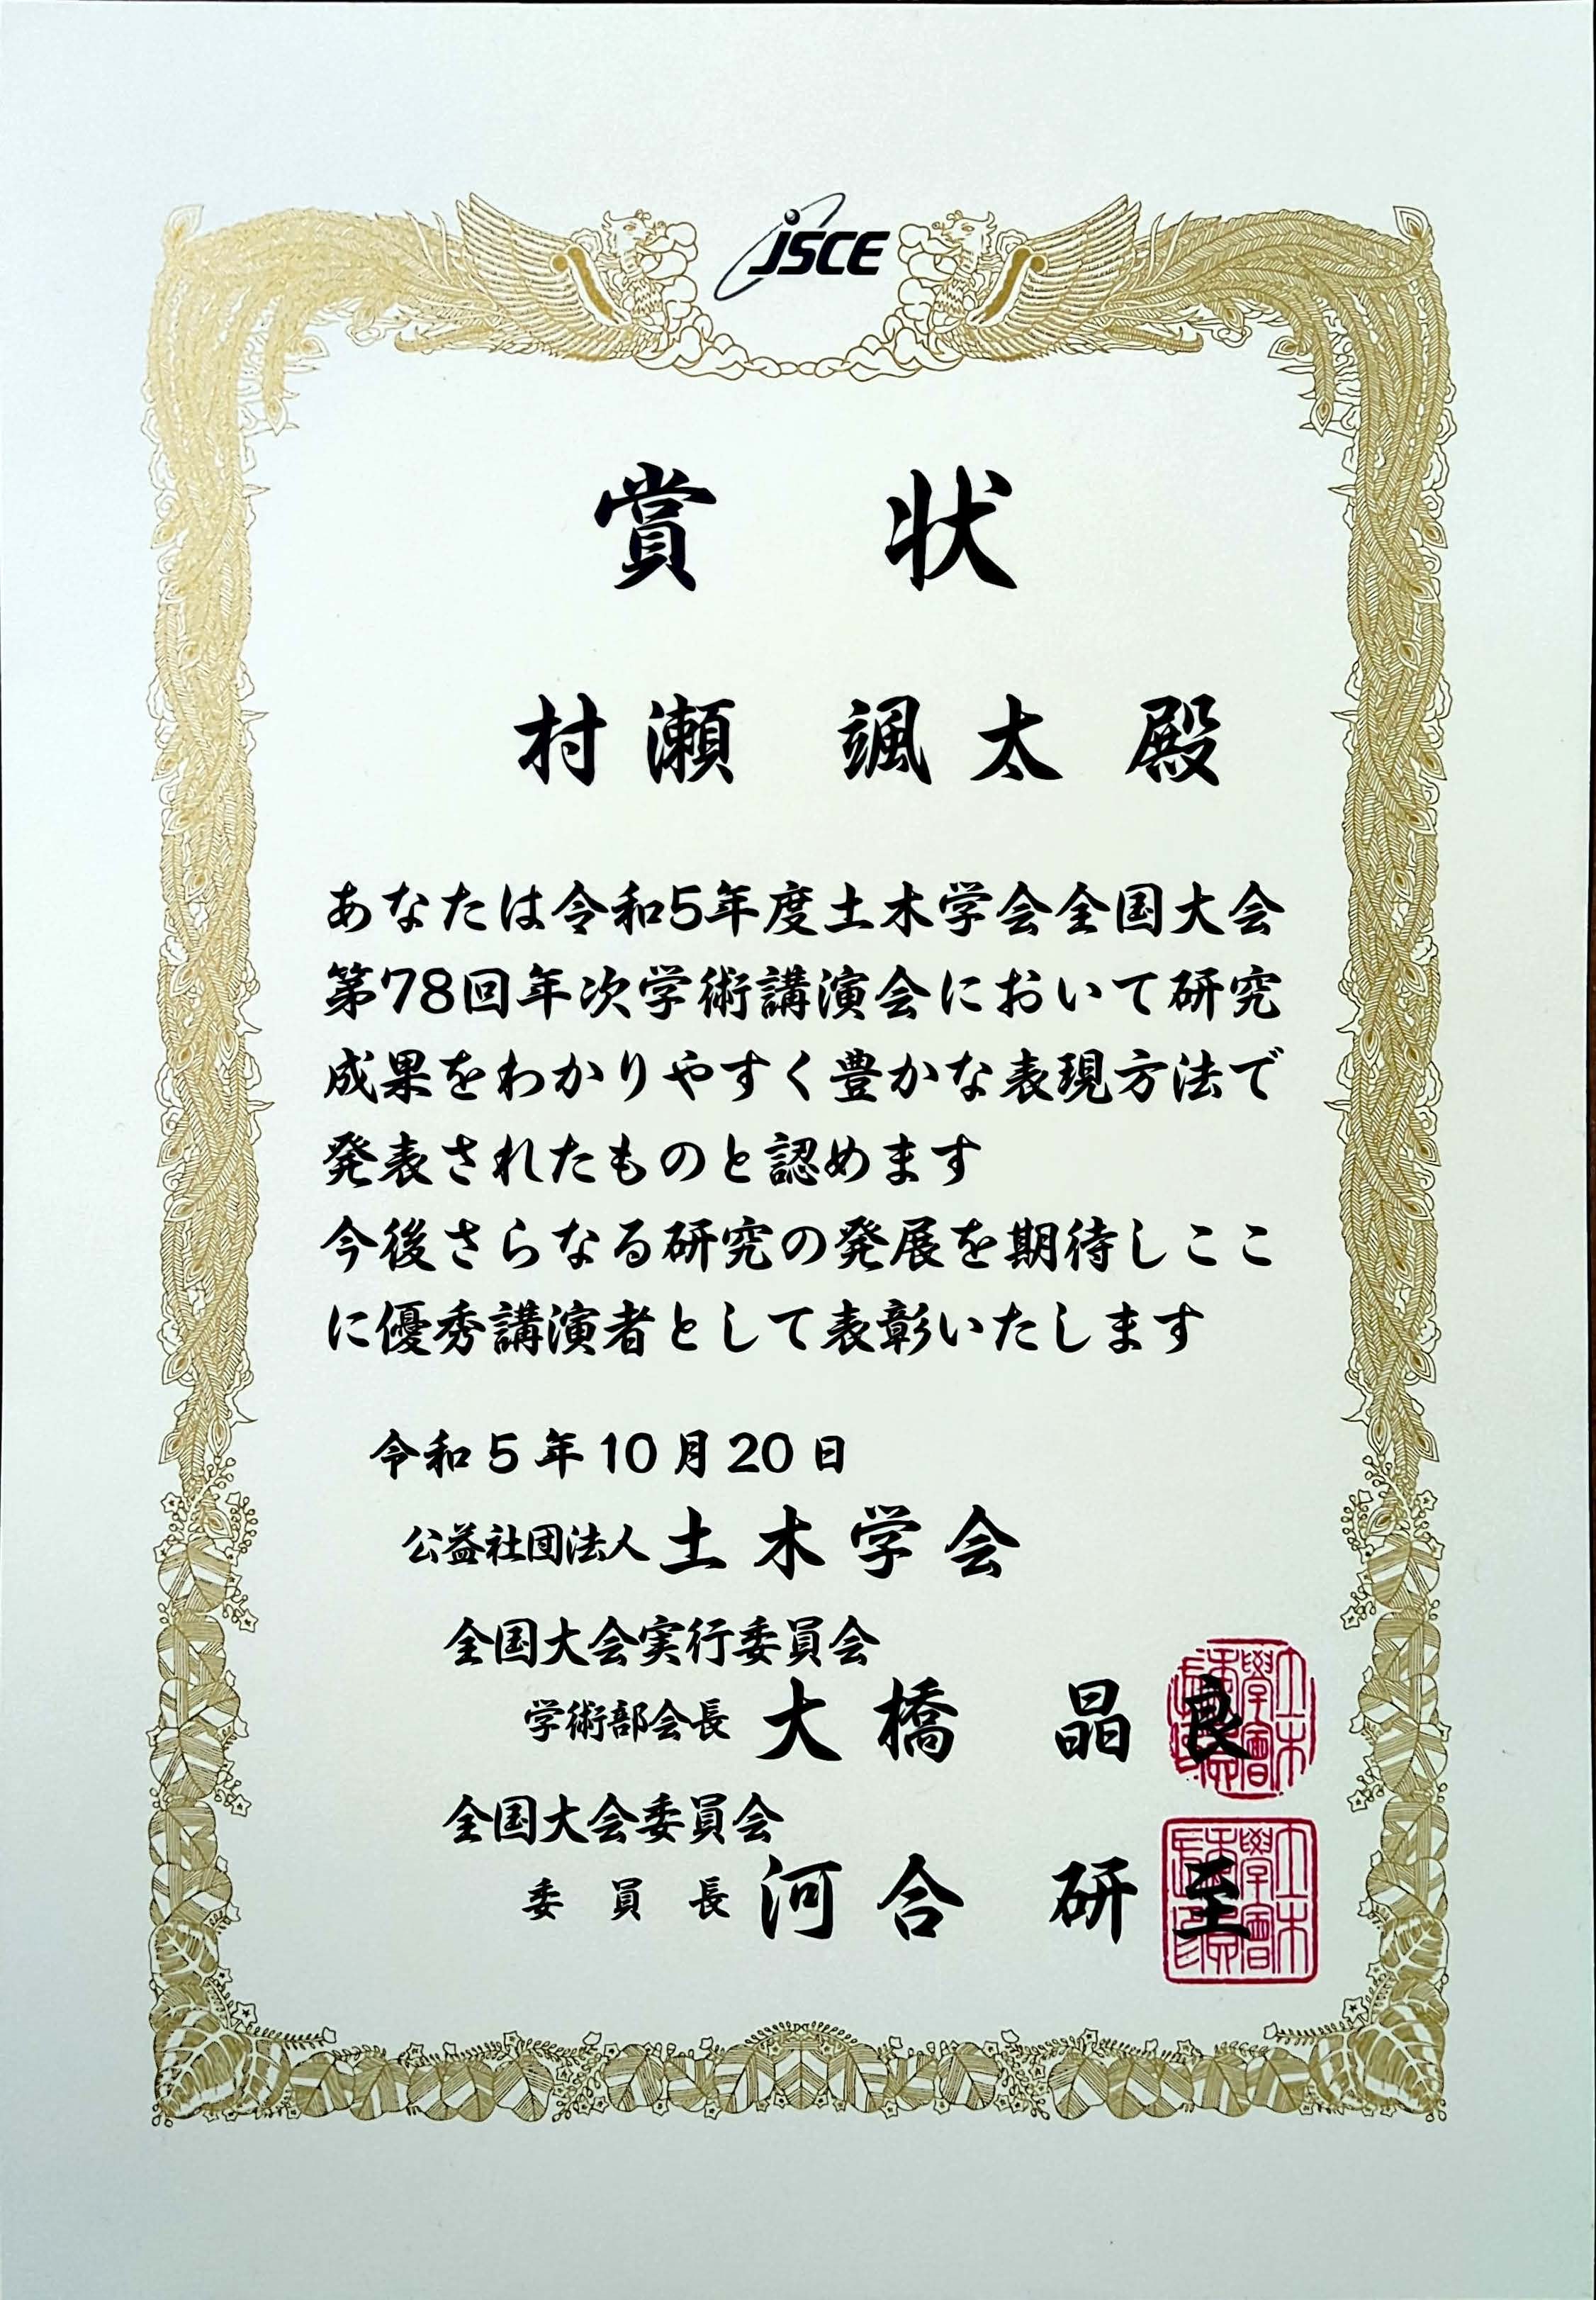 JSCE
賞 状
村瀬 颯太 殿
あなたは令和5年度土木学会全国大会
第78回年次学術講演会において研究
成果をわかりやすく豊かな表現方法で
発表されたものと認めます
今後さらなる研究の発展を期待しここ
に優秀講演者として表彰いたします
令和5年10月20日
公益社団法人 土木学会
全国大会実行委員会
学術部会長 大橋 晶良
全国大会委員会
委員長 河合 研至